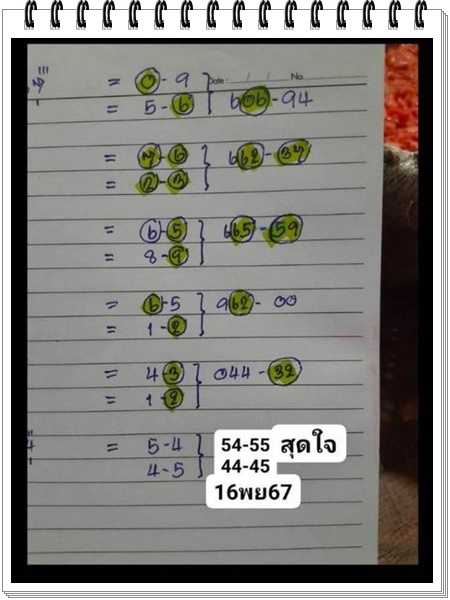 Date : / / No.
= 0 - 9
= 5 - 6 } 606 - 94
= 7 - 6
= 2 - 3 } 662 - 37
= 6 - 5
= 8 - 9 } 665 - 59
= 6 - 5
= 1 - 2 } 962 - 00
= 4 - 3
= 1 - 2 } 044 - 32
= 5 - 4
4 - 5
54-55 สุดใจ
44-45
16พย67